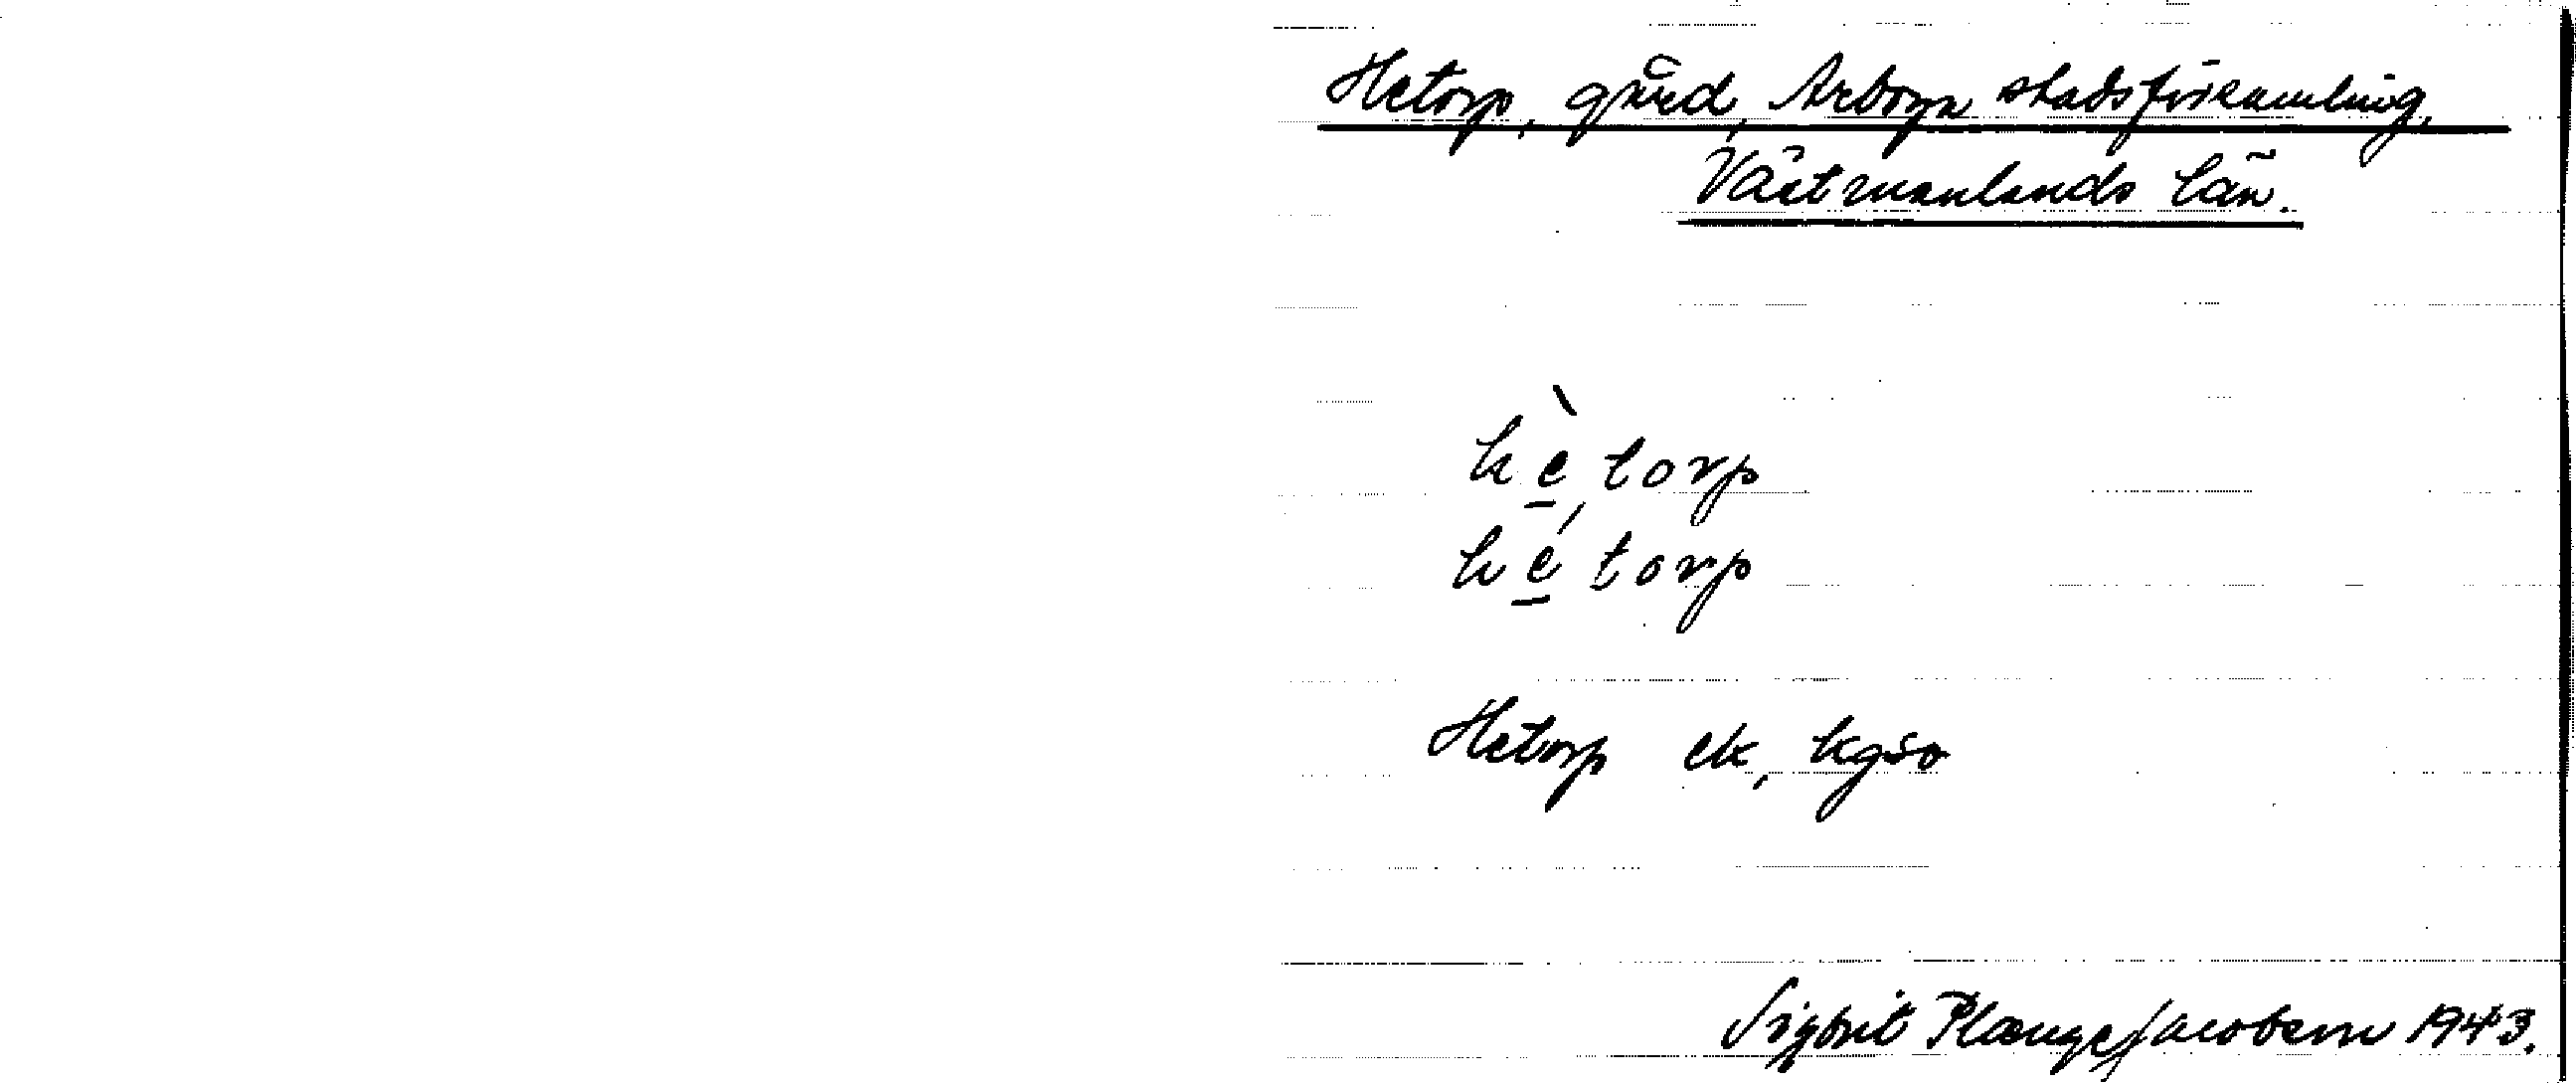 Hetorp, gård, Arboga stadsförsamling,
Västmanlands län.
hè̱torp
hé̱torp
Hetorp ek, kgso
Sigbrit Plænge Jacobson 1943.